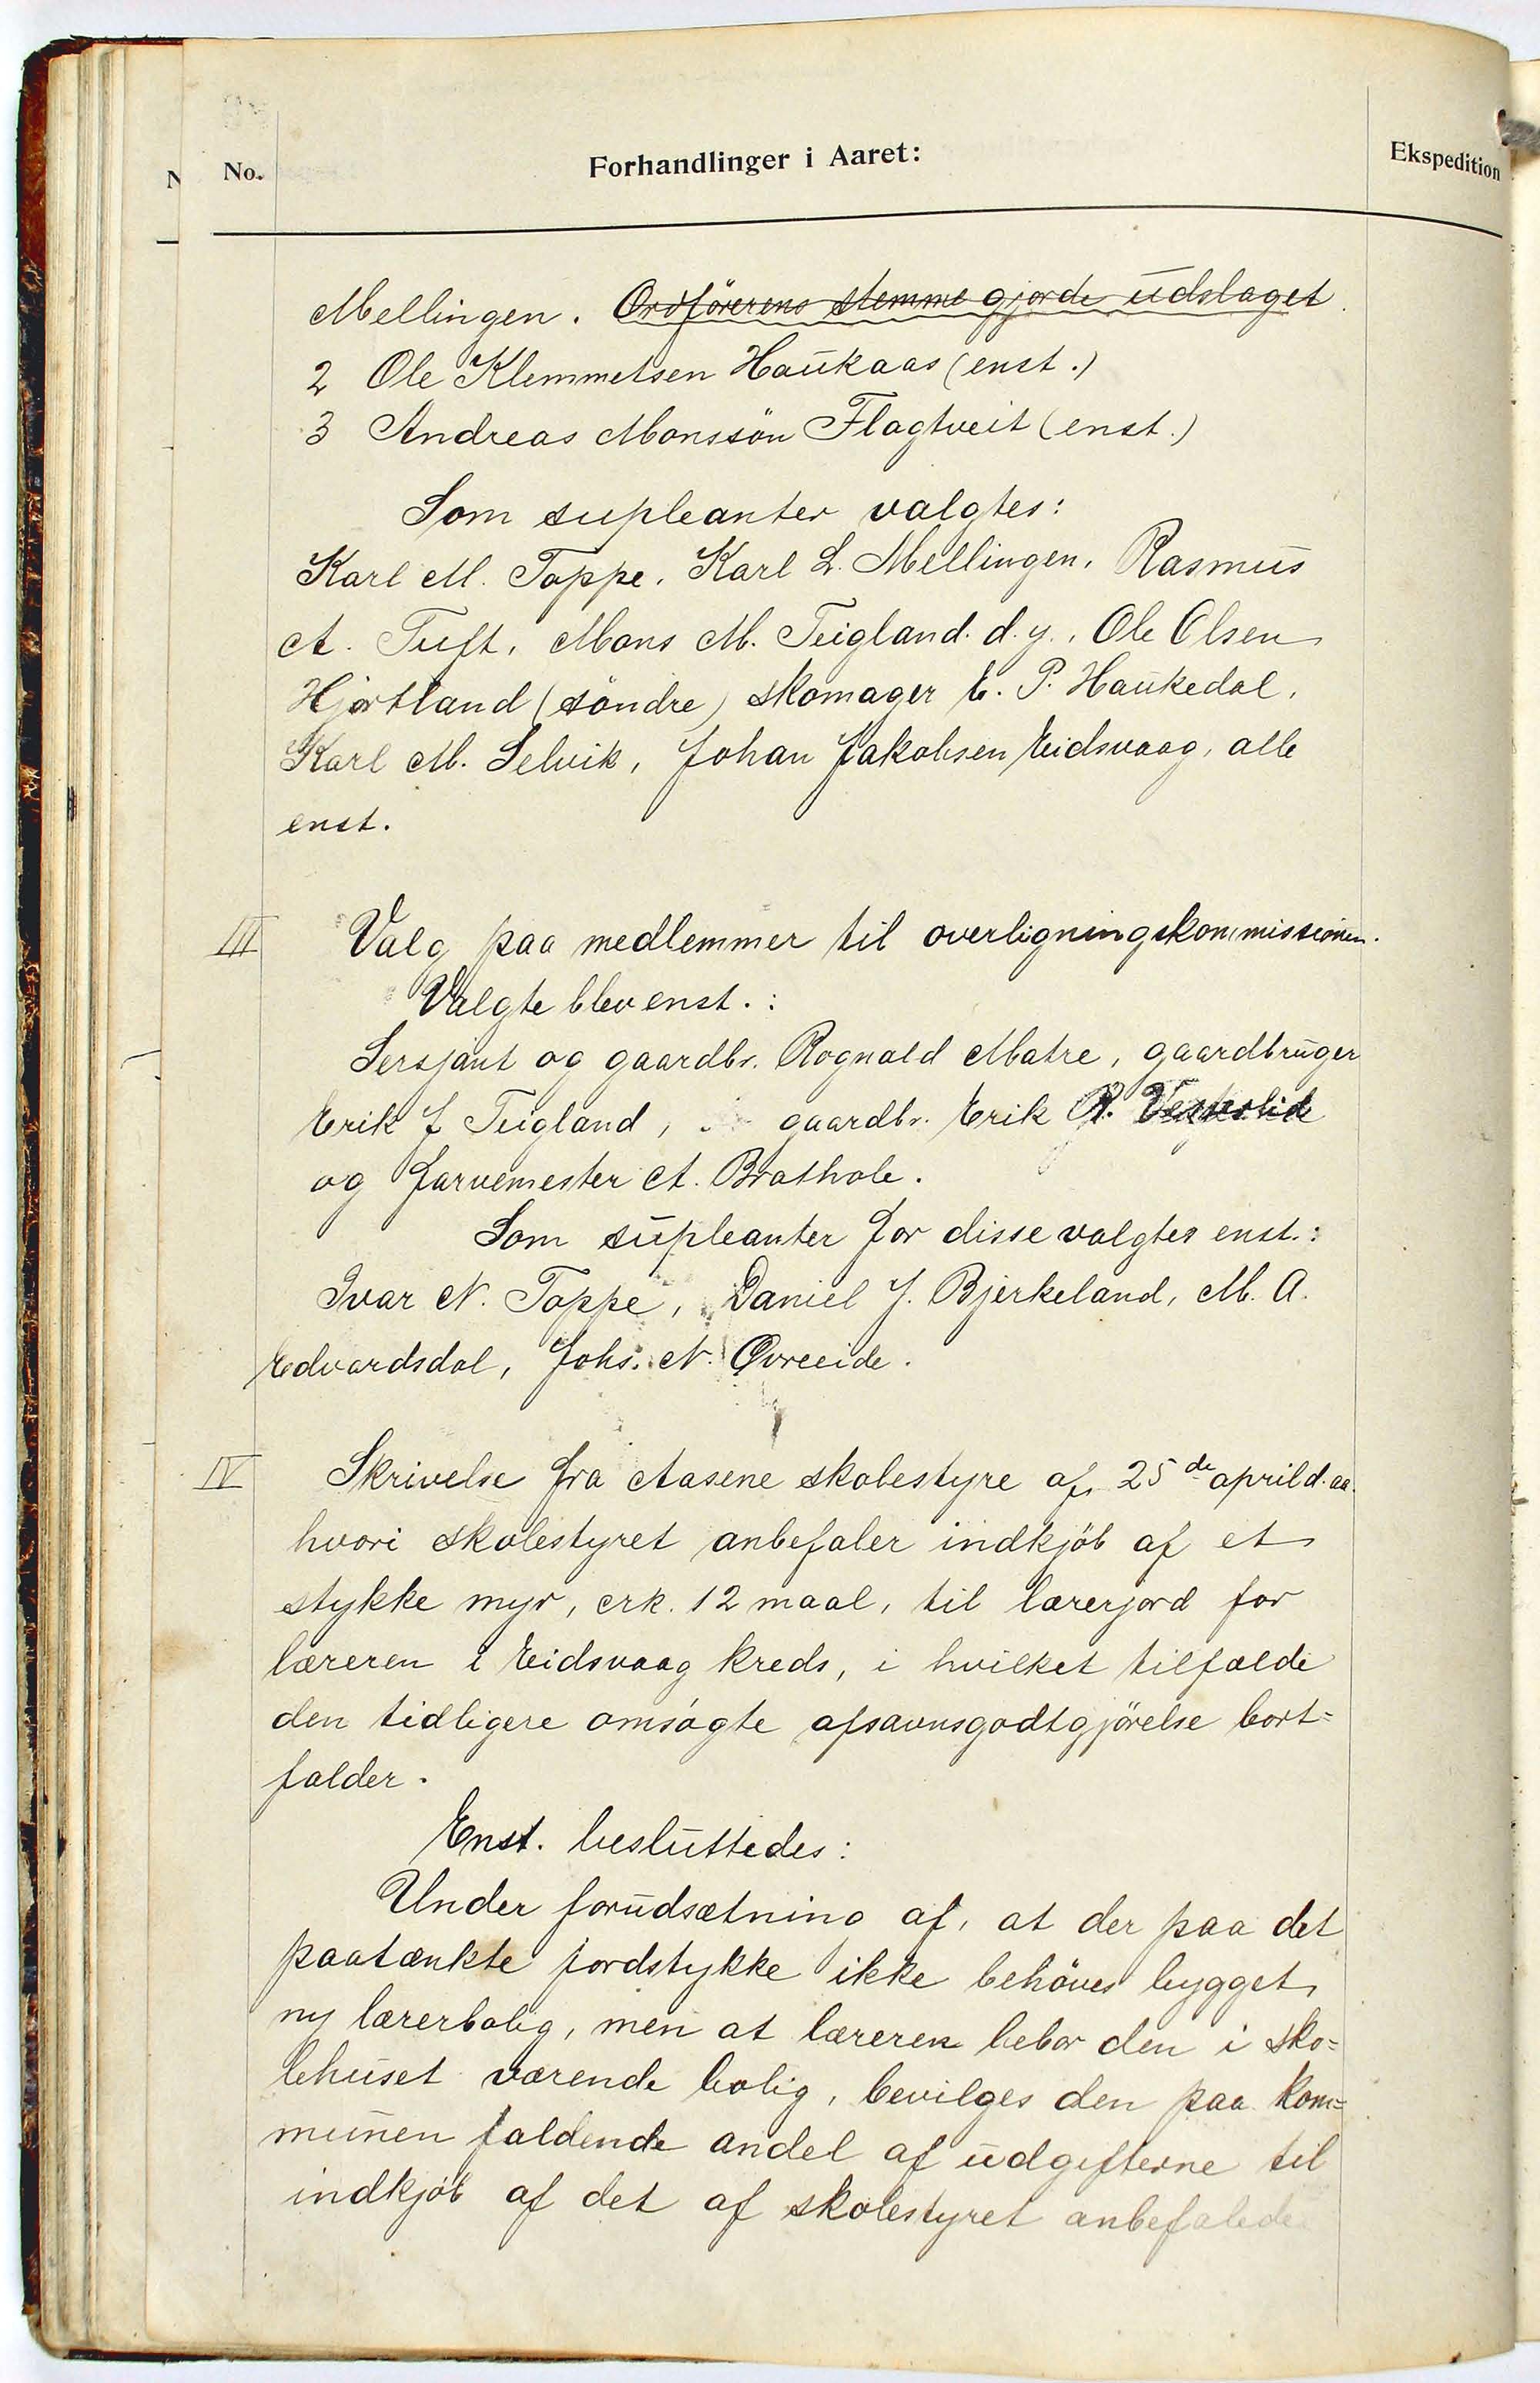 No.
Forhandlinger i Aaret:
Ekspedition
Mellingen. Ordförerens stemme gjorde udslaget.
2 Ole Klemmetsen Haukaas (enst.)
3 Andreas Monssön Flagtveit (enst.)
Som supleanter valgtes:
Karl M. Toppe, Karl L. Mellingen, Rasmus
A. Tuft, Mons M. Teigland d.y., Ole Olsen
Hjortland (söndre) skomager E. P. Haukedal,
Karl M. Selvik, Johan Jakobsen Eidsvaag, alle
enst.
III Valg paa medlemmer til overligningskommissionen.
Valgte blev enst.:
Sersjant og gaardbr. Rognald Matre, gaardbruger
Erik J Teigland, gaardbr. Erik P. Vestrelide
og farvemester A. Brathole.
Som supleanter for disse valgtes enst.:
Ivar N. Toppe, Daniel J. Bjerkeland, M. A.
Edvardsdal, Johs. N. Øvreeide.
IV Skrivelse fra Aasene skolestyre af 25de april d. aa.
hvori skolestyret anbefaler indkjöb af et
stykke myr, crk. 12 maal, til lærerjord for
læreren i Eidsvaag kreds, i hvilket tilfælde
den tidligere omsøgte afsavnsgodtgjörelse bort=
falder.
Enst. besluttedes:
Under forudsætning af, at der paa det
paatænkte jordstykke ikke behöves bygget
ny lærerbolig, men at læreren bebor den i sko=
lehuset værende bolig, bevilges den paa kom=
munen faldende andel af udgifterne til
indkjöb af det af skolestyret anbefalede